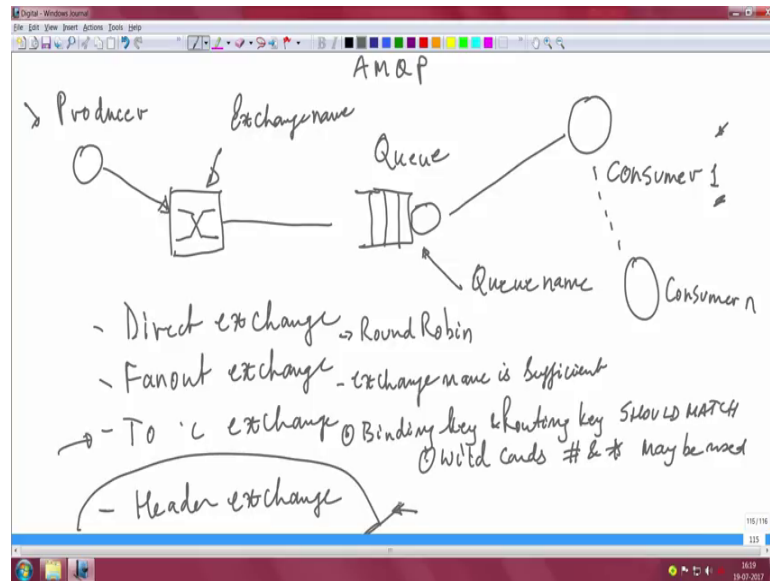 Digital - Windows Journal
File Edit View Insert Actions Tools Help
AMQP
Producer
Exchange name
Queue
Consumer 1
Queue name
Consumer n
- Direct exchange → Round Robin
- Fanout exchange - exchange name is Sufficient
- To ic exchange Binding key & Routing key SHOULD MATCH
Wild Cards # & * May be used
- Header exchange
115/116
115
16:19
19-07-2017